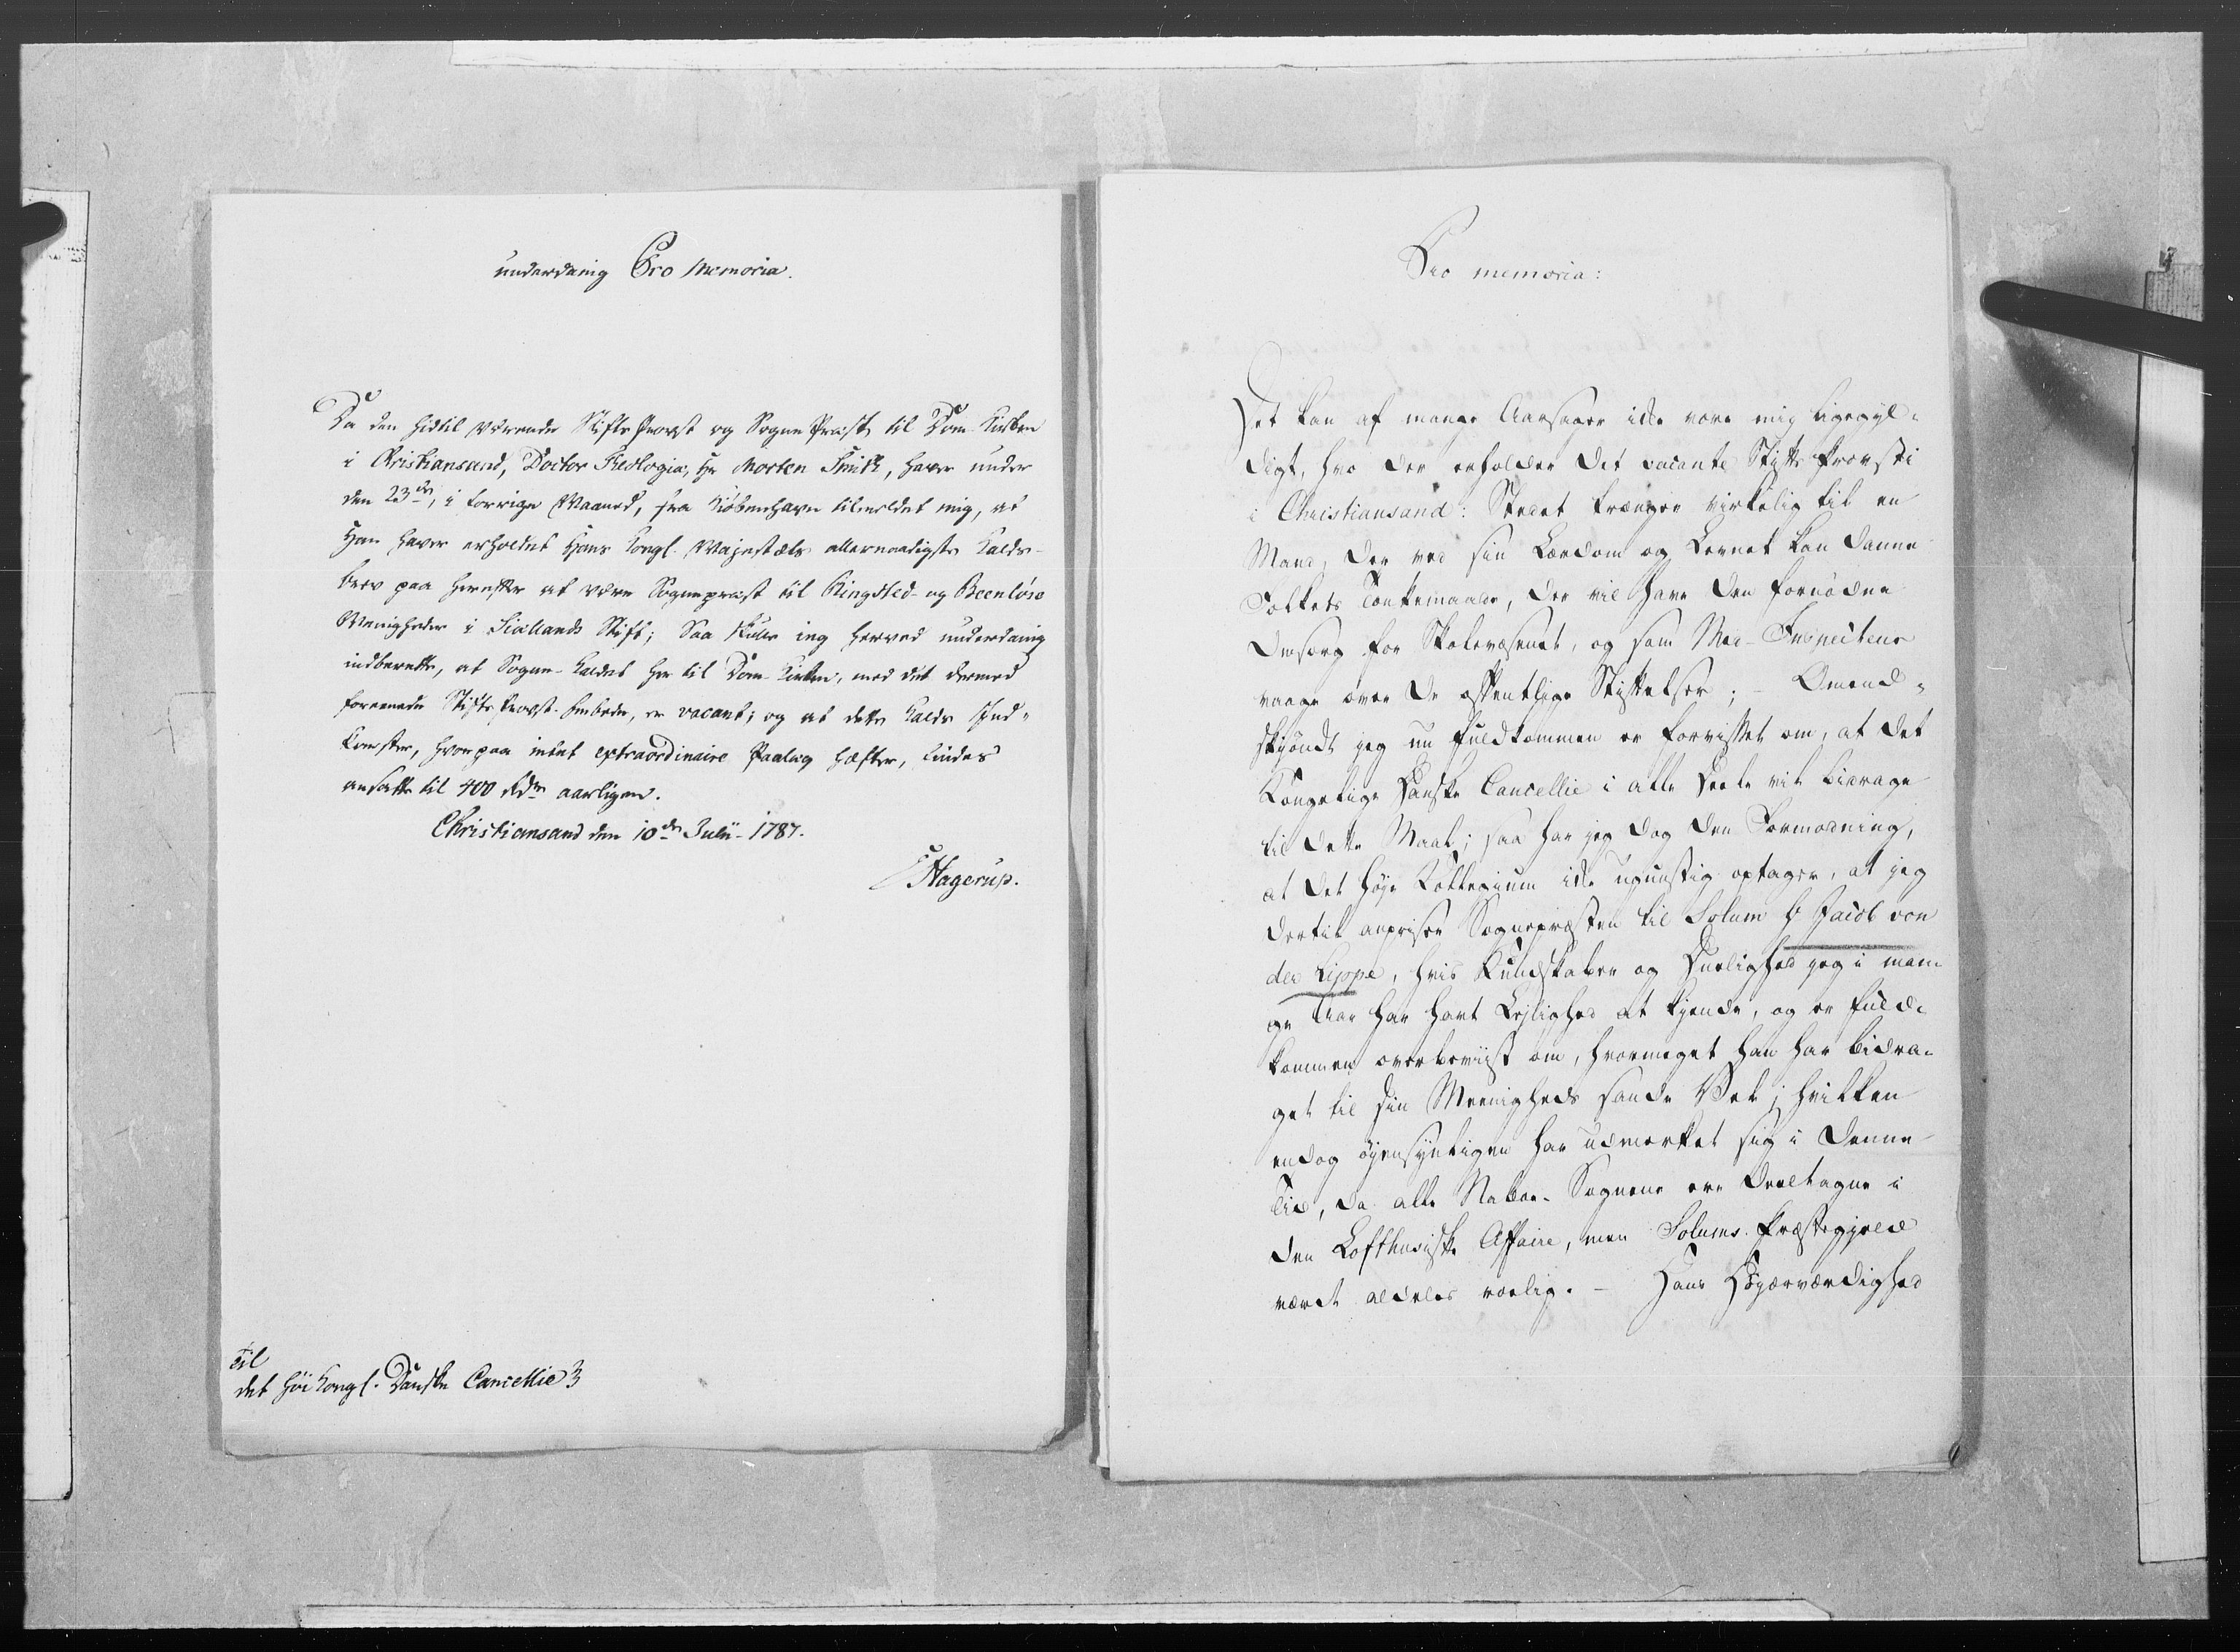 underdanig Pro Memoria.
Da den hidtil værende Stifts Provst og Sogne Præst til Dom-Kirken
i Christiansand, Doctor Theologiæ, Hr Morten Smith, haver under
den 23de, i forrige Maaned, fra Kiøbenhavn tilmeldet mig, at
Han haver erholdet Hans Kongl. Majestæts allernaadigste Kalds-
brev paa herefter at være Sognepræst til Ringsted- og Beenløse
Menigheder i Siællands Stift; Saa skulle jeg herved underdanig
indberette, at Sogne-Kaldet her til Dom-Kirken, med det dermed
foreenede Stifts Provst-Embede, er vacant; og at dette Kalds Ind-
komster, hvorpaa intet extraordinaire Paalæg hæfter, findes
ansatte til 400 Rdr aarligen.
Christiansand den 10de Julii 1787.
Hagerup.
Til
det høi Kongl. Danske Cancellie
Pro memoria:
Det kan af mange Aarsager ikke være mig ligegyl-
digt, hvo der erholder det vacante Stifts Provsti
i Christiansand: Stedet trænger virkelig til en
Mand, der ved sin Lærdom og Levnet kan danne
Folkets Tænkemaade, der vil have den fornødne
Omsorg for Skolevæsenet, og som Med-Inspecteur
vaage over de offentlige Stiftelser; - Omend-
skjøndt jeg nu fuldkommen er forvisset om, at det
Kongelige Danske Cancellie i alle Deele vil bidrage
til dette Maal; saa har jeg dog den Formodning,
at det høje Kollegium ikke ugunstig optager, at jeg
dertil anpriser Sognepræsten til Solum Hr Jacob von
der Lippe, hvis Kundskaber og Duelighed jeg i man-
ge Aar har havt Lejlighed at kjende, og er fuld-
kommen overbeviist om, hvormeget han har bidra-
get til sin Meenigheds sande Vel; hvilken
endog øjensynligen har udmærket sig i denne
Tid, da alle Naboe-Sognene ere deeltagne i
den Lofthusiske Affaire, men Solums Præstegjeld
været aldeles roelig. - Hans Højærværdighed